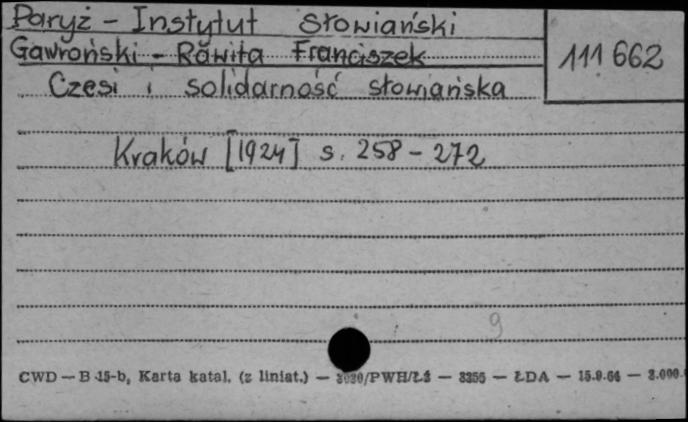 Paryż - Instytut Słowiański
Gawroński - Rawita Franciszek
111 662
Czesi i solidarność słowiańska
Kraków [1924] s. 258 - 272
9
CWD — B-15-b, Karta katal. (z liniat.) — /PWH/Łż — 3355 — ŁDA — 15.9.66 —